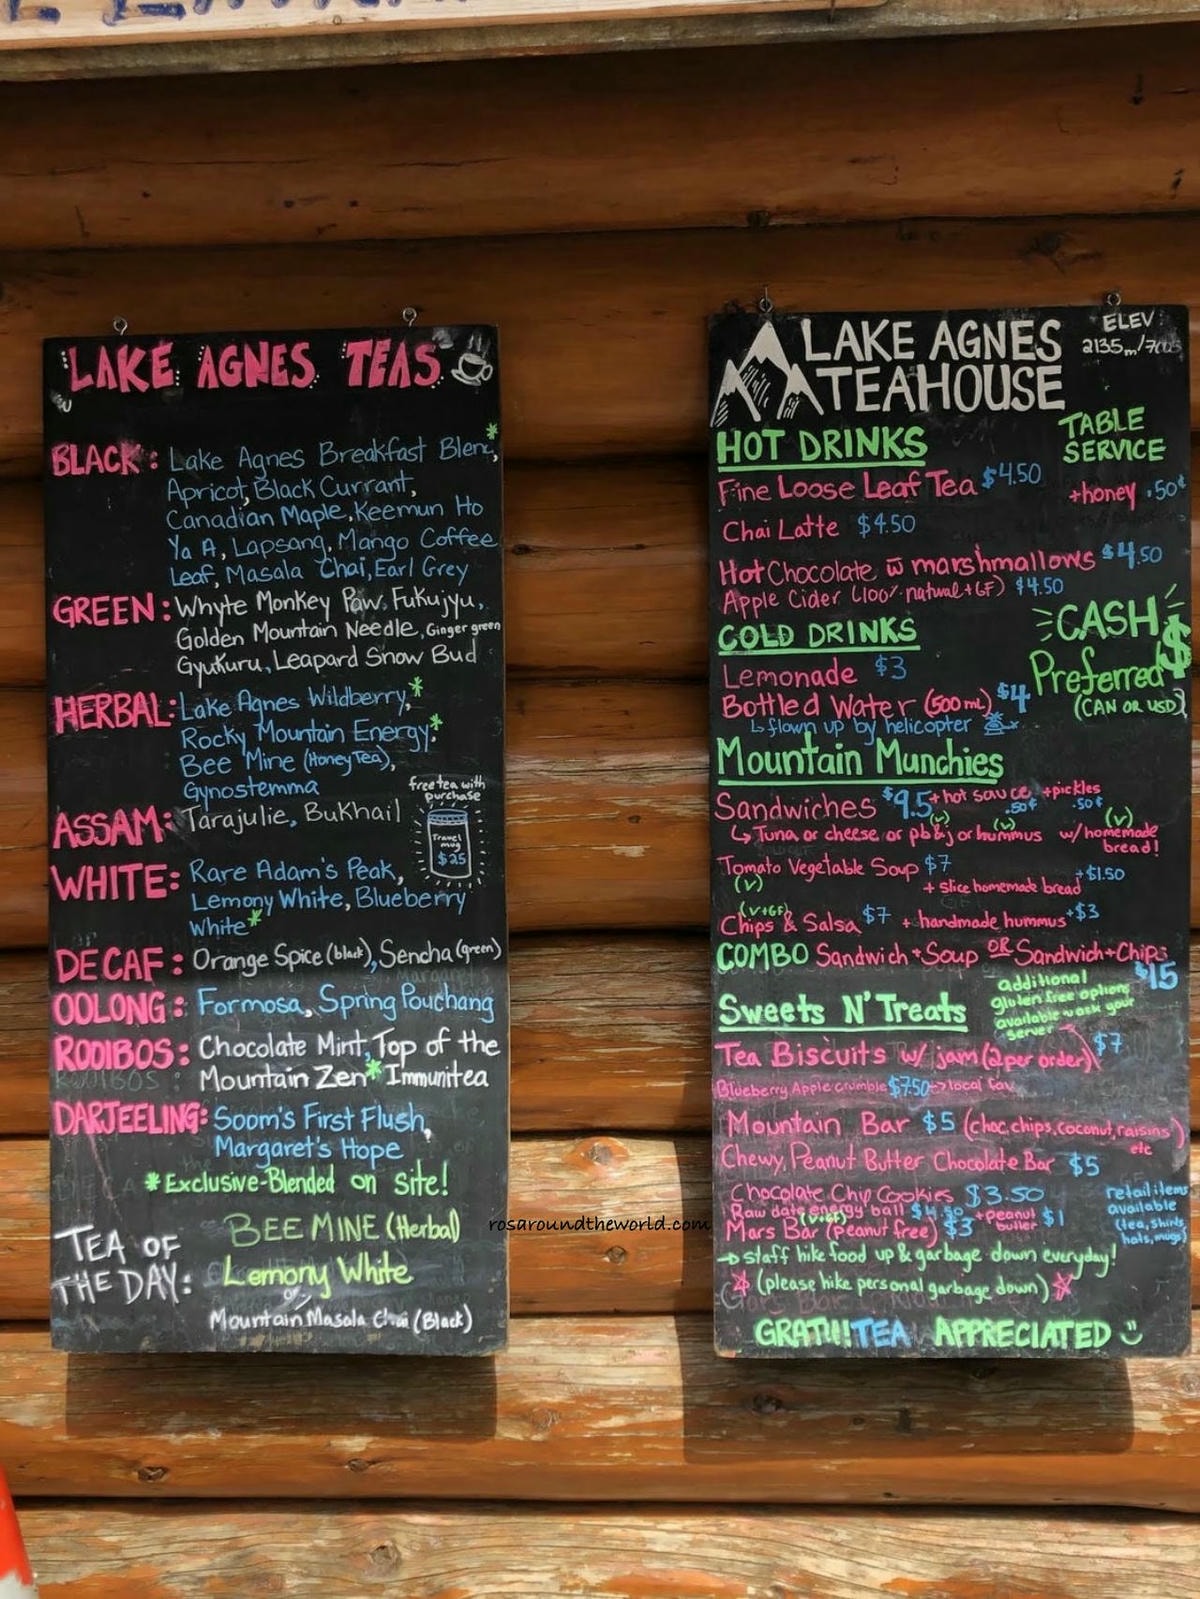 LAKE AGNES TEAS
BLACK: Lake Agnes Breakfast Blend,*
Apricot, Black Currant,
Canadian Maple, Keemun Ho
Ya A, Lapsang, Mango Coffee
Leaf, Masala Chai, Earl Grey
GREEN: Whyte Monkey Paw, Fukujyu,
Golden Mountain Needle, Ginger green
Gyukuru, Leapard Snow Bud
HERBAL: Lake Agnes Wildberry,*
Rocky Mountain Energy,*
Bee Mine (Honey Tea),
Gynostemma
free tea with
purchase
Travel
mug
$25
ASSAM: Tarajulie, Bukhail
WHITE: Rare Adam's Peak,
Lemony White, Blueberry
White*
DECAF: Orange Spice (black), Sencha (green)
OOLONG: Formosa, Spring Pouchang
ROOIBOS: Chocolate Mint, Top of the
Mountain Zen* Immunitea
DARJEELING: Soom's First Flush,
Margaret's Hope
*Exclusive-Blended on site!
TEA OF
THE DAY:
BEE MINE (Herbal)
Lemony White
or
Mountain Masala Chai (Black)
LAKE AGNES
TEAHOUSE
ELEV
2135m/
HOT DRINKS
TABLE
SERVICE
Fine Loose Leaf Tea $4.50
+honey .50¢
Chai Latte $4.50
Hot Chocolate w̄ marshmallows $4.50
Apple Cider (100% natural + GF) $4.50
COLD DRINKS
CASH $
Preferred
(CAN OR USD)
Lemonade $3
Bottled Water (500mL) $4
↳ flown up by helicopter
Mountain Munchies
Sandwiches $9.5 + hot sauce .50¢ +pickles .50¢
↳ Tuna or cheese or pb&j (v) or hummus (v) w/ homemade (v)
bread!
Tomato Vegetable Soup $7
(v) + slice homemade bread +$1.50
(V+GF)
Chips & Salsa $7 + handmade hummus +$3
COMBO Sandwich + Soup OR Sandwich + Chips
$15
Sweets N' Treats
additional
gluten free options
available ask your
server
Tea Biscuits w/ jam (2 per order) $7
Blueberry Apple crumble $7.50 → local fav
Mountain Bar $5 (choc.chips, coconut, raisins)
etc
Chewy, Peanut Butter Chocolate Bar $5
Chocolate Chip Cookies $3.50
Raw date energy ball $4.50 + peanut butter $1
(V+GF)
Mars Bar (peanut free) $3
retail items
available
(tea, shirts,
hats, mugs)
→ staff hike food up & garbage down everyday!
(please hike personal garbage down)
GRATUITEA APPRECIATED
rosaroundtheworld.com